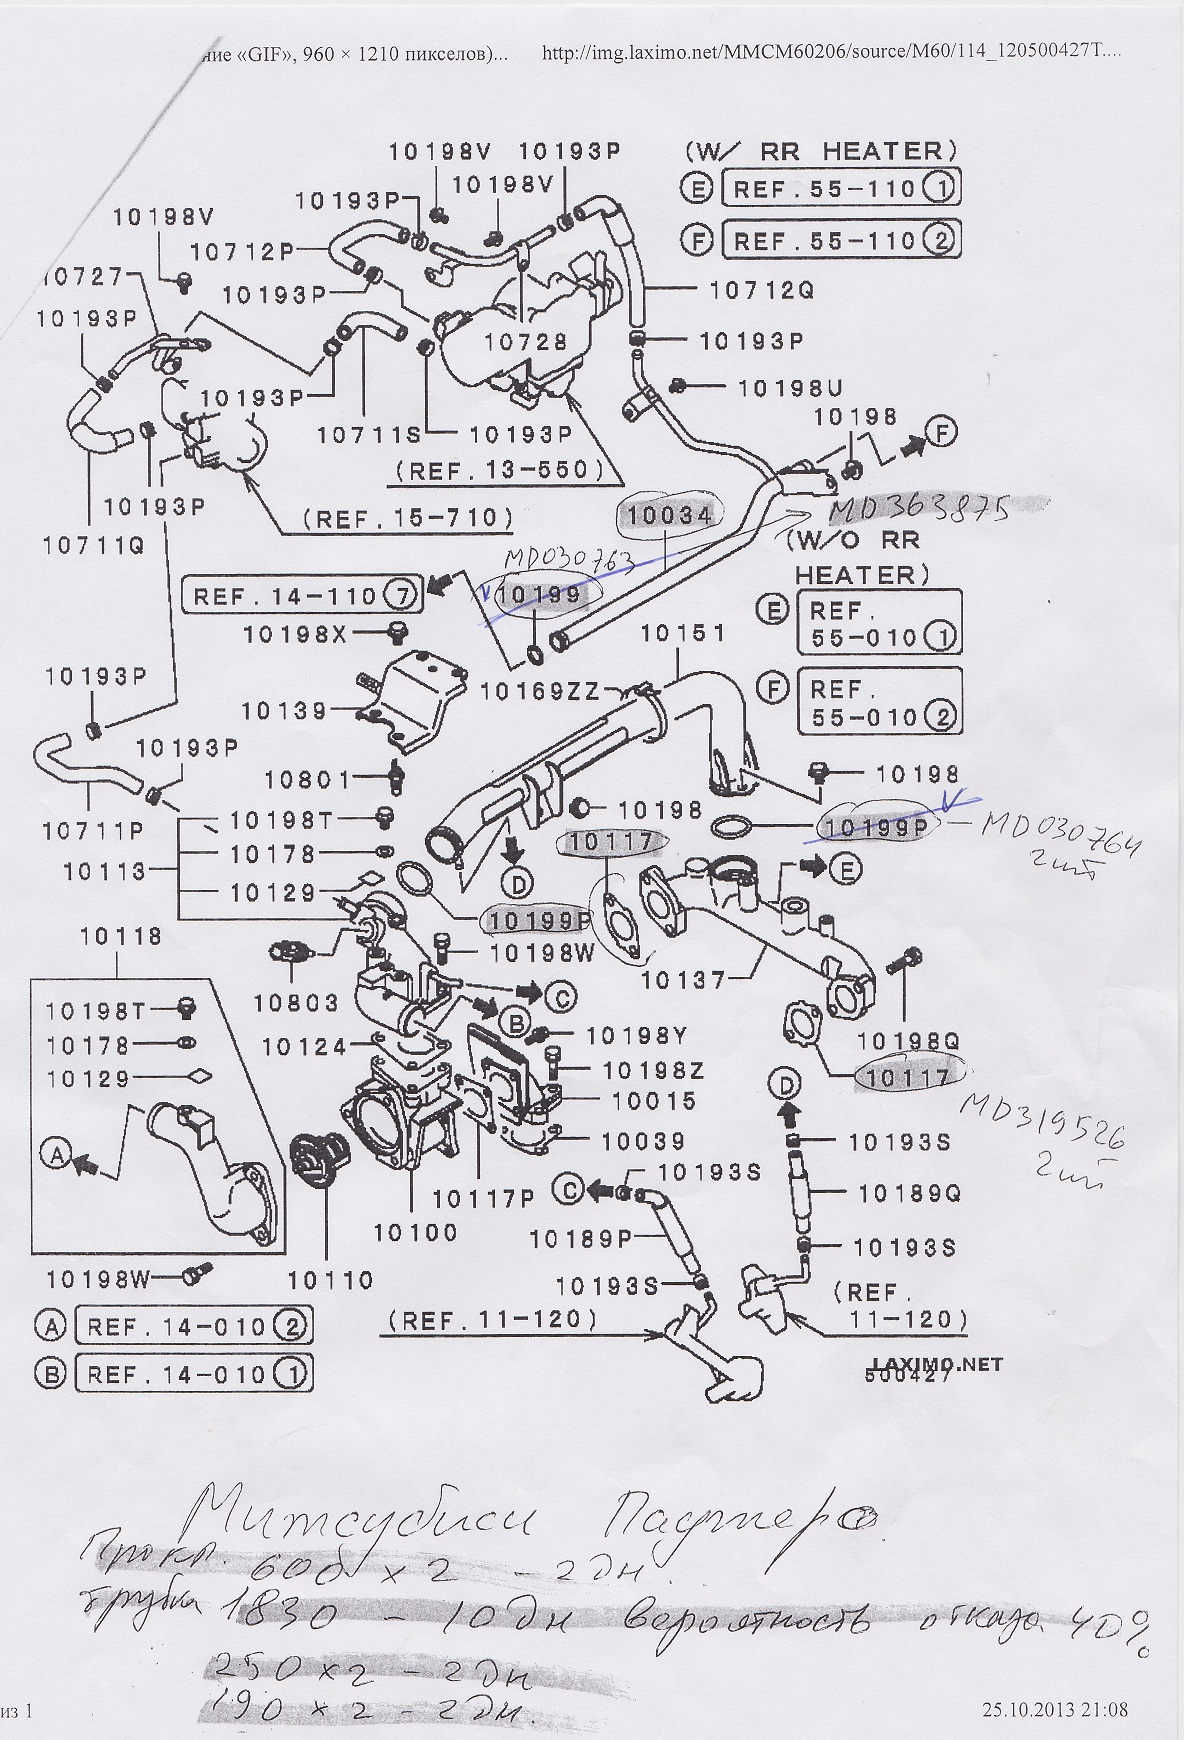 ние «GIF», 960 × 1210 пикселов)... http://img.laximo.net/MMCM60206/source/M60/114_120500427T....
10198V 10193P (W/ RR HEATER)
10193P 10198V E REF.55-110 1
10198V
10712P F REF.55-110 2
10727 10193P 10712Q
10193P 10728 10193P
10193P 10198U
10711S 10193P 10198 F
(REF.13-550)
10193P (REF.15-710) 10034 MD363875
10711Q (W/O RR
MD030763 HEATER)
REF.14-110 7 10199 E REF.
55-010 1
10198X 10151
10193P 10169ZZ F REF.
55-010 2
10139
10193P 10801 10198 10198
10711P 10198T 10117 10199P – MD030764
2шт
10113 10178 D E
10129 10199P
10118 10198W 10137
10803 C
10198T B 10198Y 10198Q
10178 10124 10198Z D 10117
10129 10015 MD319526
2шт
10039 10193S
A C 10193S 10189Q
10117P
10100 10189P 10193S
10198W 10110 10193S (REF.
11-120)
A REF.14-010 2 (REF.11-120)
B REF.14-010 1 LAXIMO.NET
500427
Митсубиси Паджеро
Прокл. 600 x 2 - 2 дн.
трубка 1830 - 10 дн вероятность отказа 40%
250 x 2 - 2 дн
190 x 2 - 2 дн.
из 1 25.10.2013 21:08